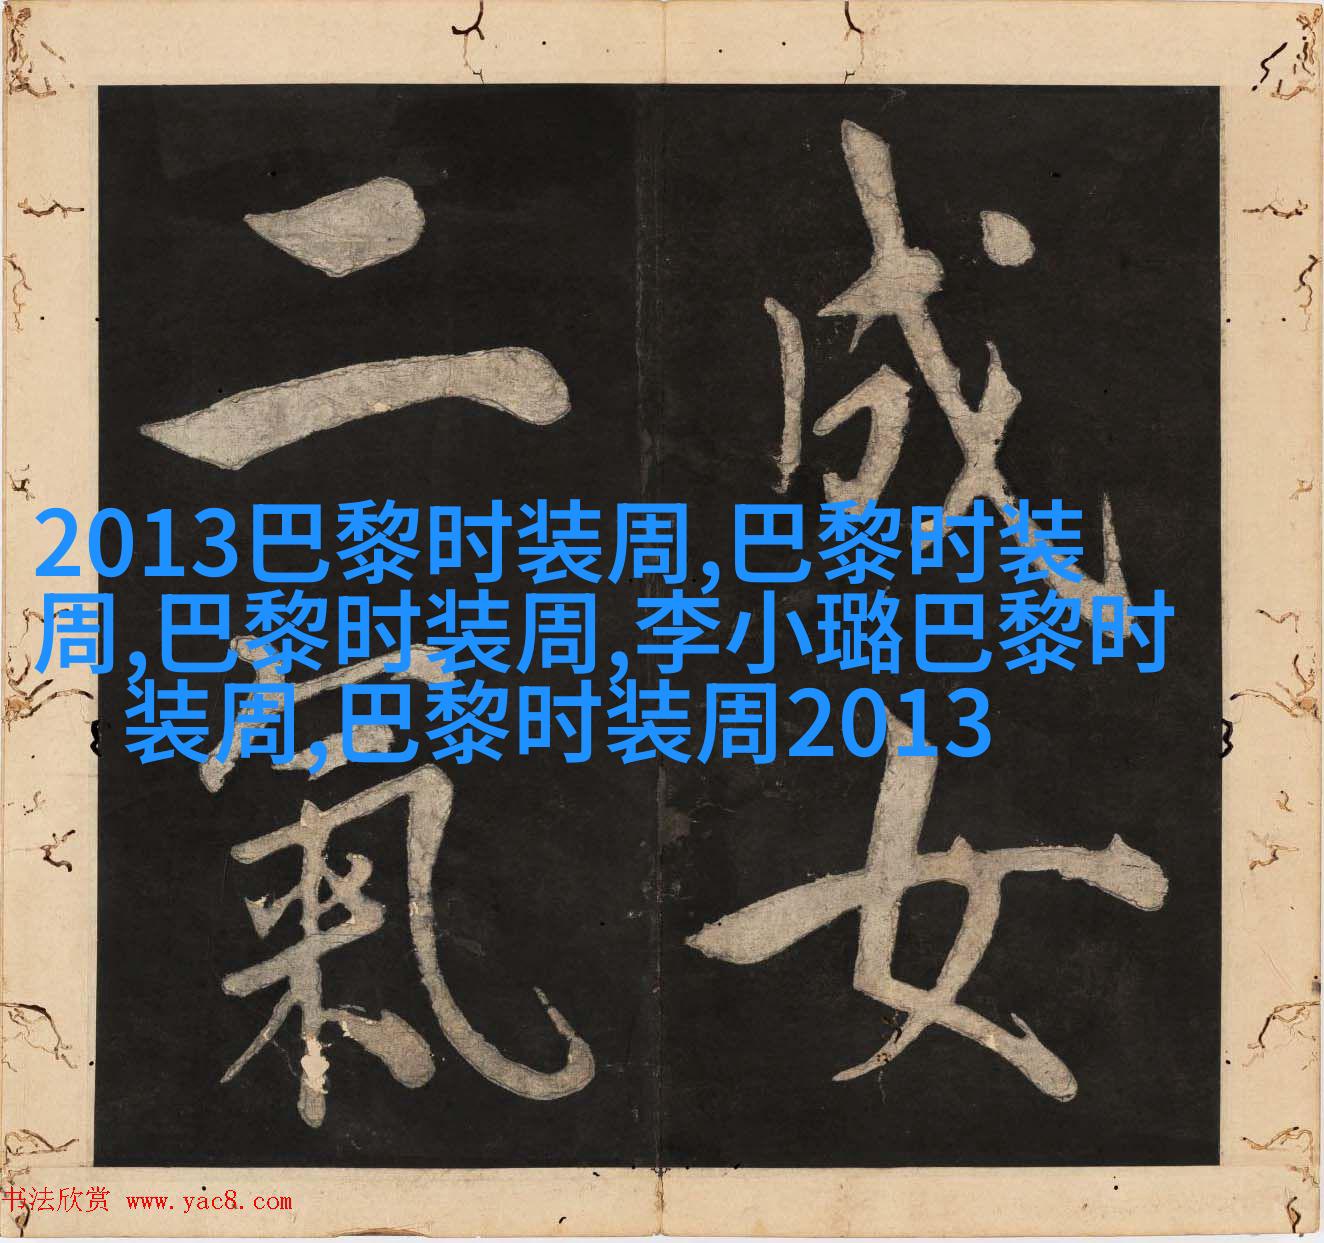 成女
二氣
2013巴黎时装周,巴黎时装
周,巴黎时装周,李小璐巴黎时
装周,巴黎时装周2013
书法欣赏 www.yac8.com